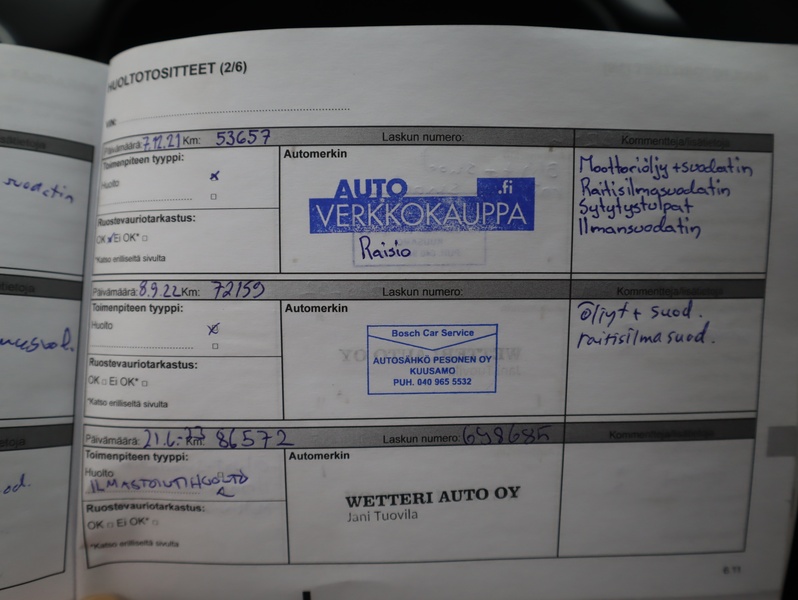 HUOLTOTOSITTEET (2/6)
VIN:
Päivämäärä: 7.12.21 Km: 53657 Laskun numero: Kommentteja/lisätietoja
Toimenpiteen tyyppi:
Huolto x
Ruostevauriotarkastus:
OK Ei OK*
*Katso erilliseltä sivulta
Automerkin
AUTO .fi
VERKKOKAUPPA
Raisio
Moottoriöljy + suodatin
Raitisilmasuodatin
Sytytystulpat
Ilmansuodatin
Päivämäärä: 8.9.22 Km: 72159 Laskun numero: Kommentteja/lisätietoja
Toimenpiteen tyyppi:
Huolto x
Ruostevauriotarkastus:
OK □ Ei OK* □
*Katso erilliseltä sivulta
Automerkin
Bosch Car Service
AUTOSÄHKÖ PESONEN OY
KUUSAMO
PUH. 040 965 5532
öljyt + suod.
raitisilmasuod.
Päivämäärä: 21.6.-23 Km: 86572 Laskun numero: 698685 Kommentteja/lisätietoja
Toimenpiteen tyyppi:
Huolto
ILMASTOINTIHUOLTO
Ruostevauriotarkastus:
OK □ Ei OK* □
*Katso erilliseltä sivulta
Automerkin
WETTERI AUTO OY
Jani Tuovila
6.11
suodatin
od.